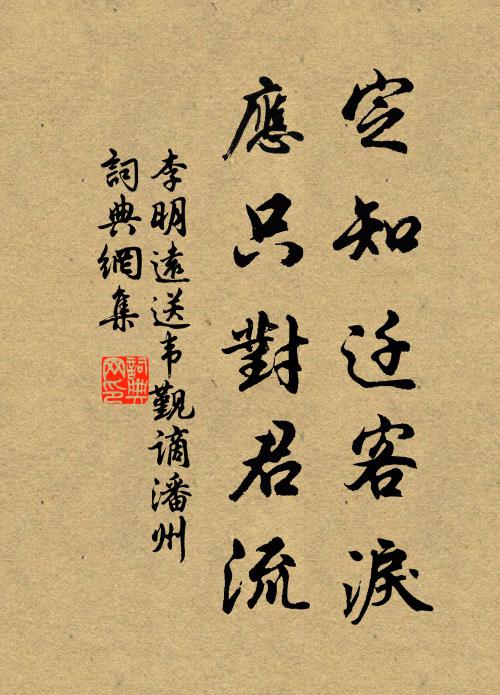 定知迁客淚
應只對君流
李明遠送韦覲谪潘州
詞典網集
詞典网印